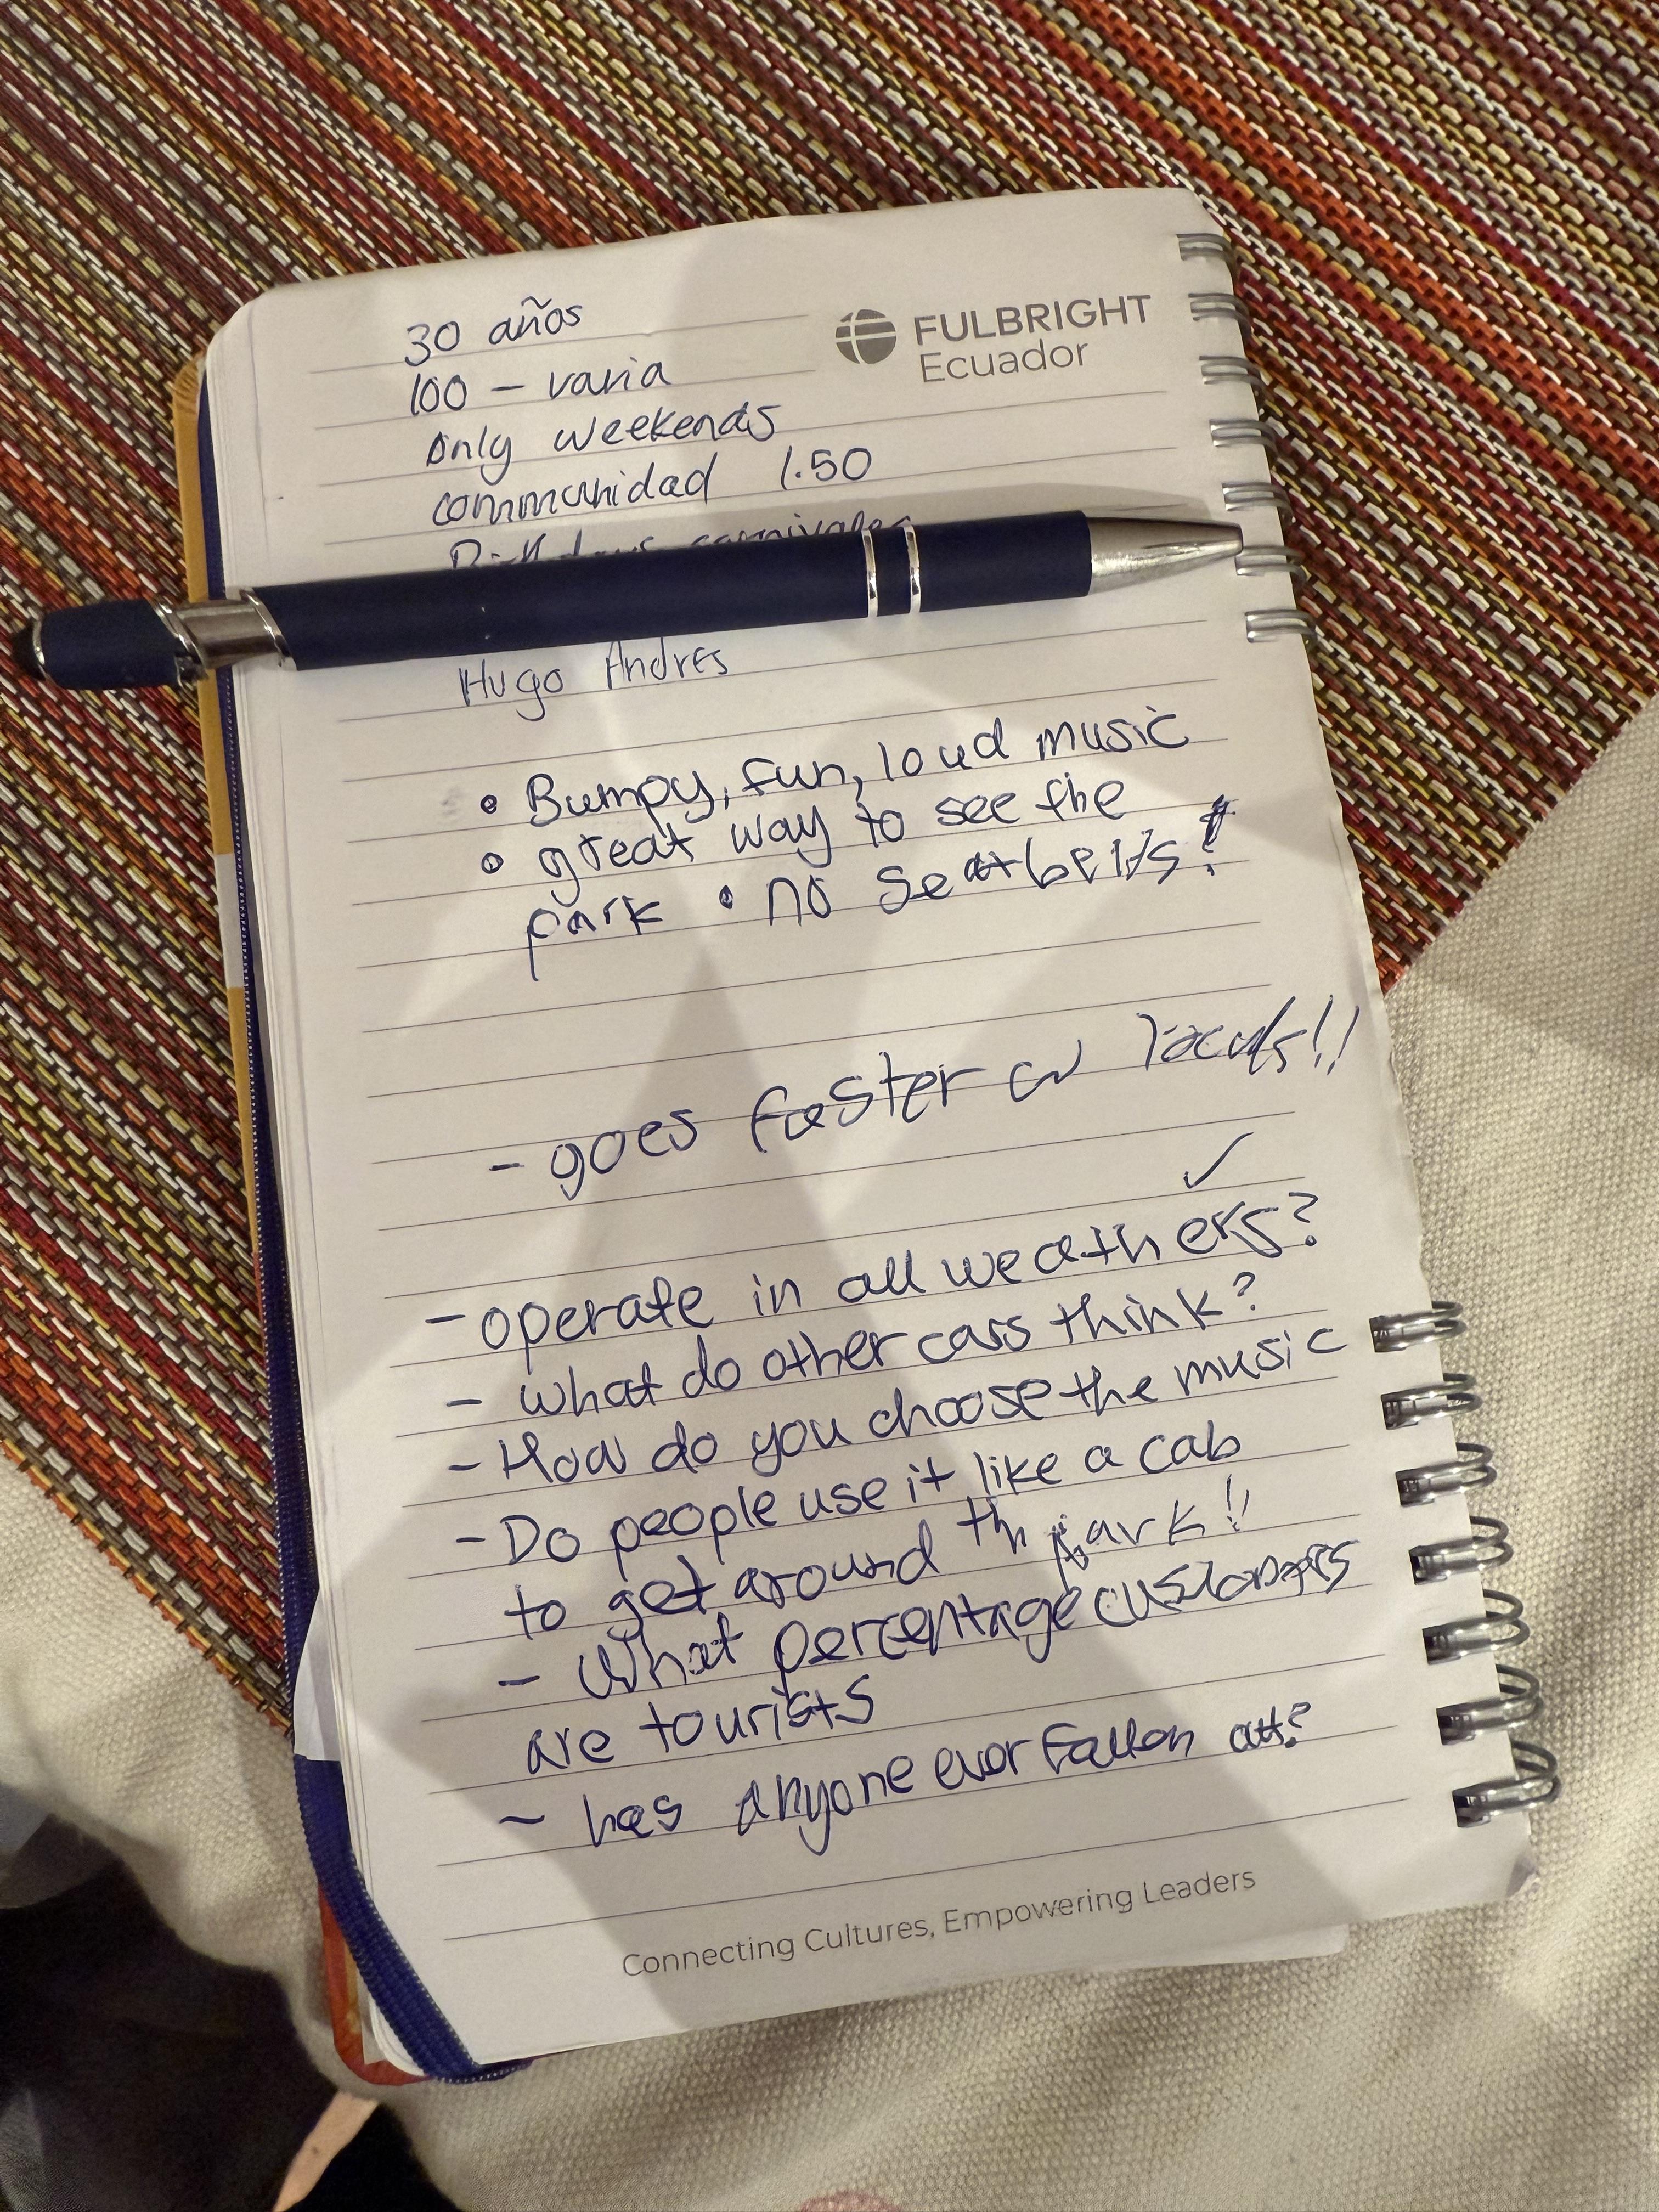 30 años
FULBRIGHT
Ecuador
100 – varia
only weekends
communidad 1.50
Hugo Andres
• Bumpy, fun, loud music
• great way to see the
park • no seatbelts!
- goes faster w locals!!
✓
- operate in all weathers?
- what do other cars think?
- How do you choose the music
- Do people use it like a cab
to get around th park!!
- What percentage customers
are tourists
- has anyone ever fallen
Connecting Cultures, Empowering Leaders